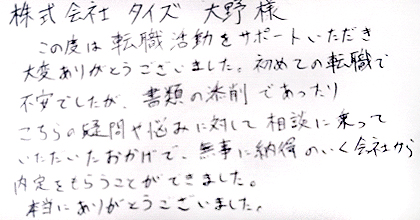 株式会社 タイズ 大野様
この度は転職活動をサポートいただき
大変ありがとうございました。初めての転職で
不安でしたが、書類の添削であったり
こちらの疑問や悩みに対して相談に乗って
いただいたおかげで、無事に納得のいく会社から
内定をもらうことができました。
本当にありがとうございました。